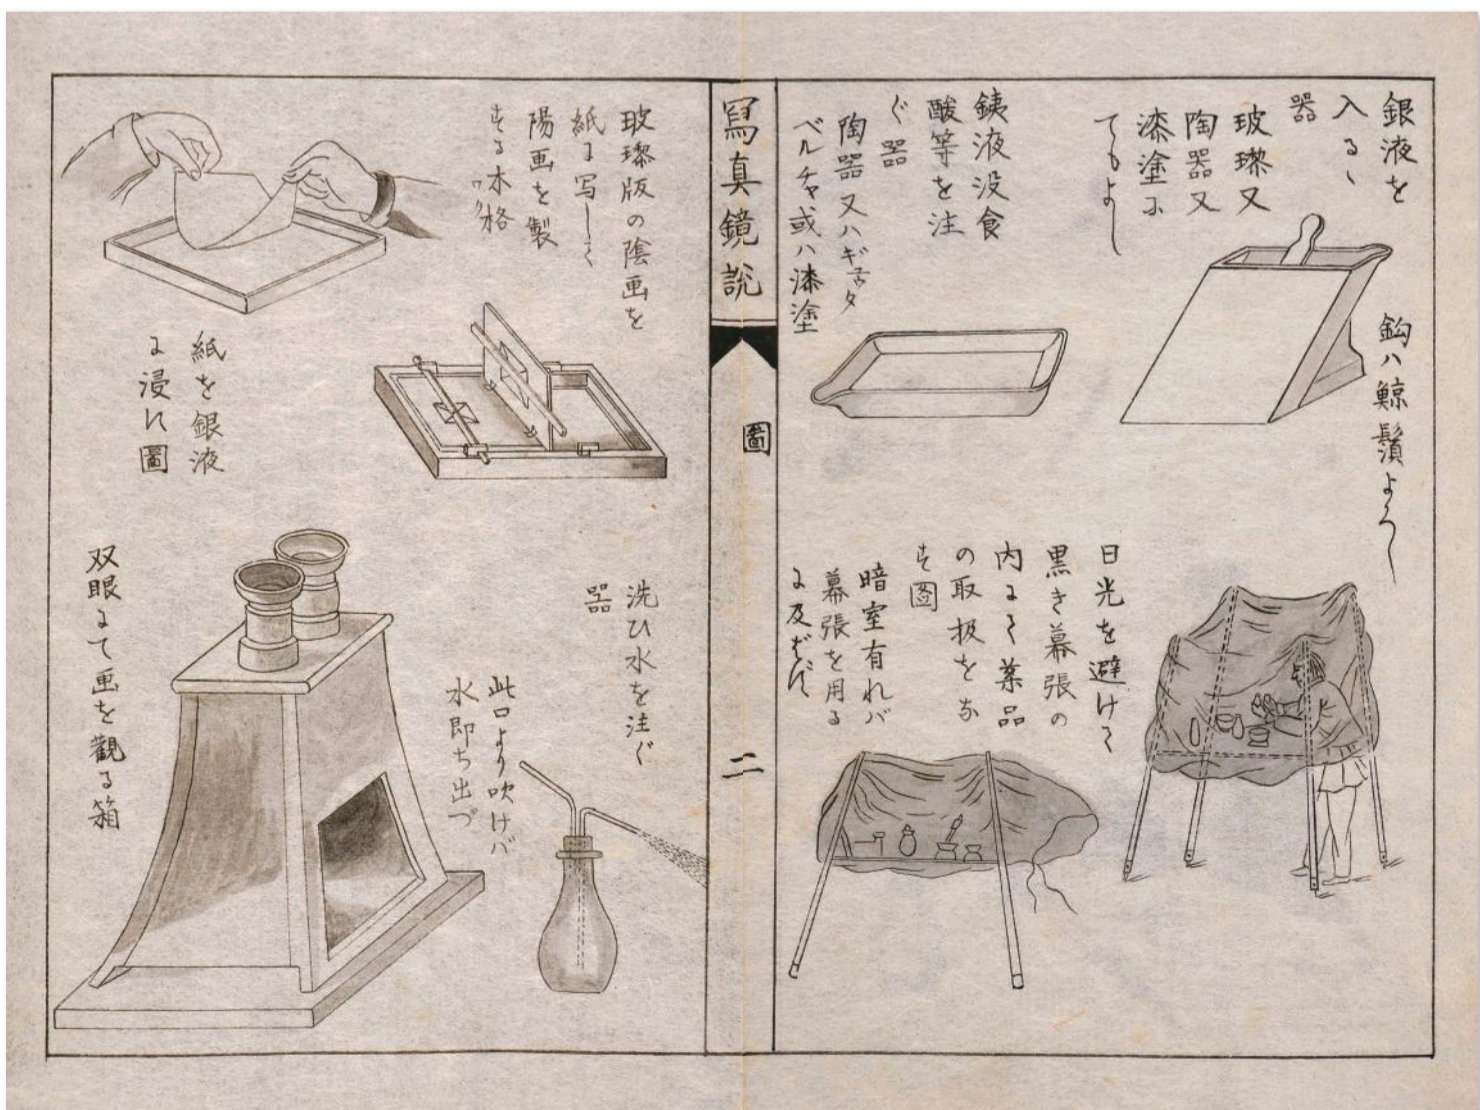 銀液を
入るゝ
器
玻瓈又
陶器又
漆塗に
てもよし
鈎ハ鯨鬚よろし
銕液没食
酸等を注
ぐ器
陶器又ハギュタ
ペルチャ或ハ漆塗
日光を避けて
黒き幕張の
内にて薬品
の取扱をな
す圖
暗室有れバ
幕張を用る
に及ばず
冩真鏡説
圖
二
玻瓈版の陰画を
紙に写して
陽画を製
する木格
ワク
紙を銀液
に浸す圖
洗ひ水を注ぐ
器
此口より吹けバ
水即ち出づ
双眼にて画を觀る箱